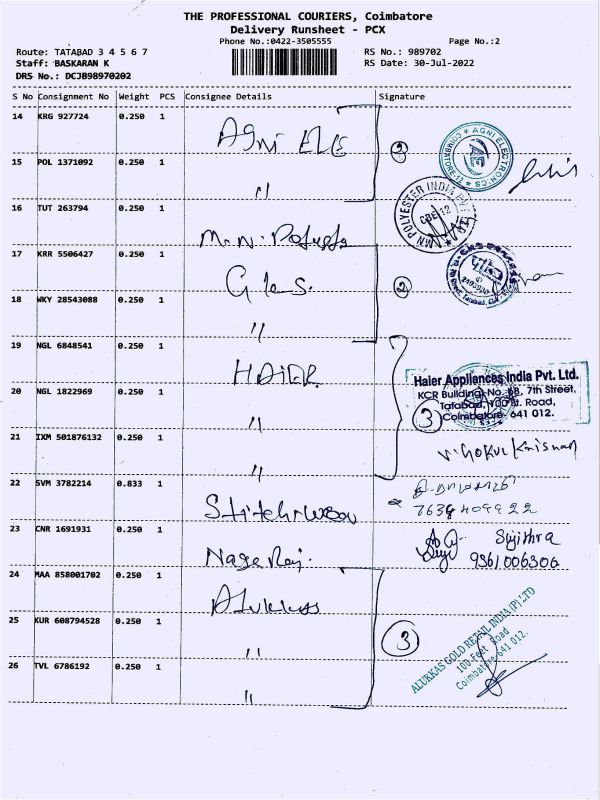 THE PROFESSIONAL COURIERS, Coimbatore
Delivery Runsheet - PCX
Phone No.:0422-3505555 Page No.:2
Route: TATABAD 3 4 5 6 7 RS No.: 989702
Staff: BASKARAN K RS Date: 30-Jul-2022
DRS No.: DCJB98970202
S No Consignment No Weight PCS Consignee Details Signature
14 KRG 927724 0.250 1 Agni ELE
2
AGNI ELECTRONICS
COIMBATORE-12
15 POL 1371092 0.250 1 "
16 TUT 263794 0.250 1 M.N.
MN POLYESTER INDIA PVT
CBE-12
17 KRR 5506427 0.250 1
2
18 WKY 28543088 0.250 1 "
19 NGL 6848541 0.250 1 HAIER
Haier Appliances India Pvt. Ltd.
KCR Building, No. 68, 7th Street,
Tatabad, 100 Ft. Road,
Coimbatore - 641 012.
20 NGL 1822969 0.250 1 "
3
21 IXM 501876132 0.250 1 "
V. Gokul Krisnan
22 SVM 3782214 0.833 1
23 CNR 1691931 0.250 1 Nage Raj.
Sujithra
9361006306
24 MAA 858001702 0.250 1 Alukkas
25 KUR 608794528 0.250 1 "
3
ALUKKAS GOLD RETAIL INDIA (P) LTD
100-Feet Road
Coimbatore-641 012.
26 TVL 6786192 0.250 1 "